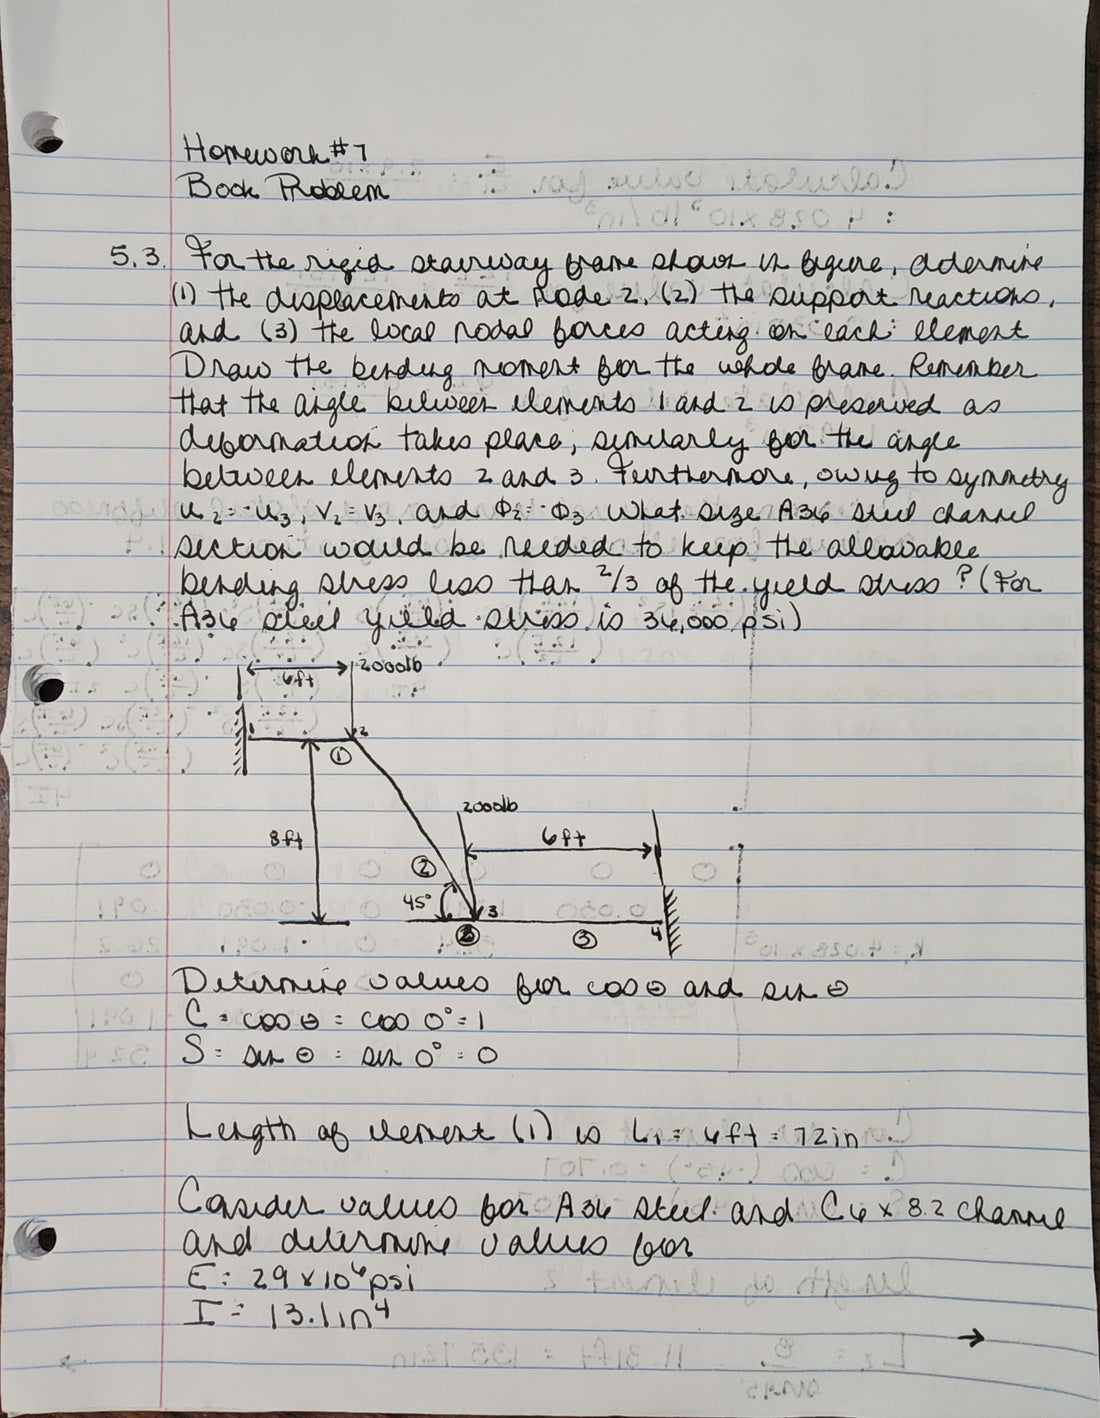 Homework #7
Book Problem
5.3. For the rigid stairway frame shown in figure, determine
(1) the displacements at node 2, (2) the support reactions,
and (3) the local nodal forces acting on each element
Draw the bending moment for the whole frame. Remember
that the angle between elements 1 and 2 is preserved as
deformation takes place; similarly for the angle
between elements 2 and 3. Furthermore, owing to symmetry
u₂ = -u₃, v₂ = v₃, and Φ₂ = Φ₃. What size A36 steel channel
section would be needed to keep the allowable
bending stress less than 2/3 of the yield stress? (For
A36 steel yield stress is 36,000 psi)
6ft 2000lb
1 2
①
8ft
2000lb
6ft
②
45°
3
② ③ 4
Determine values for cos θ and sin θ
C = cos θ = cos 0° = 1
S = sin θ = sin 0° = 0
Length of element (1) is L₁ = 6ft = 72in
Consider values for A36 steel and C6 x 8.2 channel
and determine values for
E = 29 x 10⁶ psi
I = 13.1in⁴
→